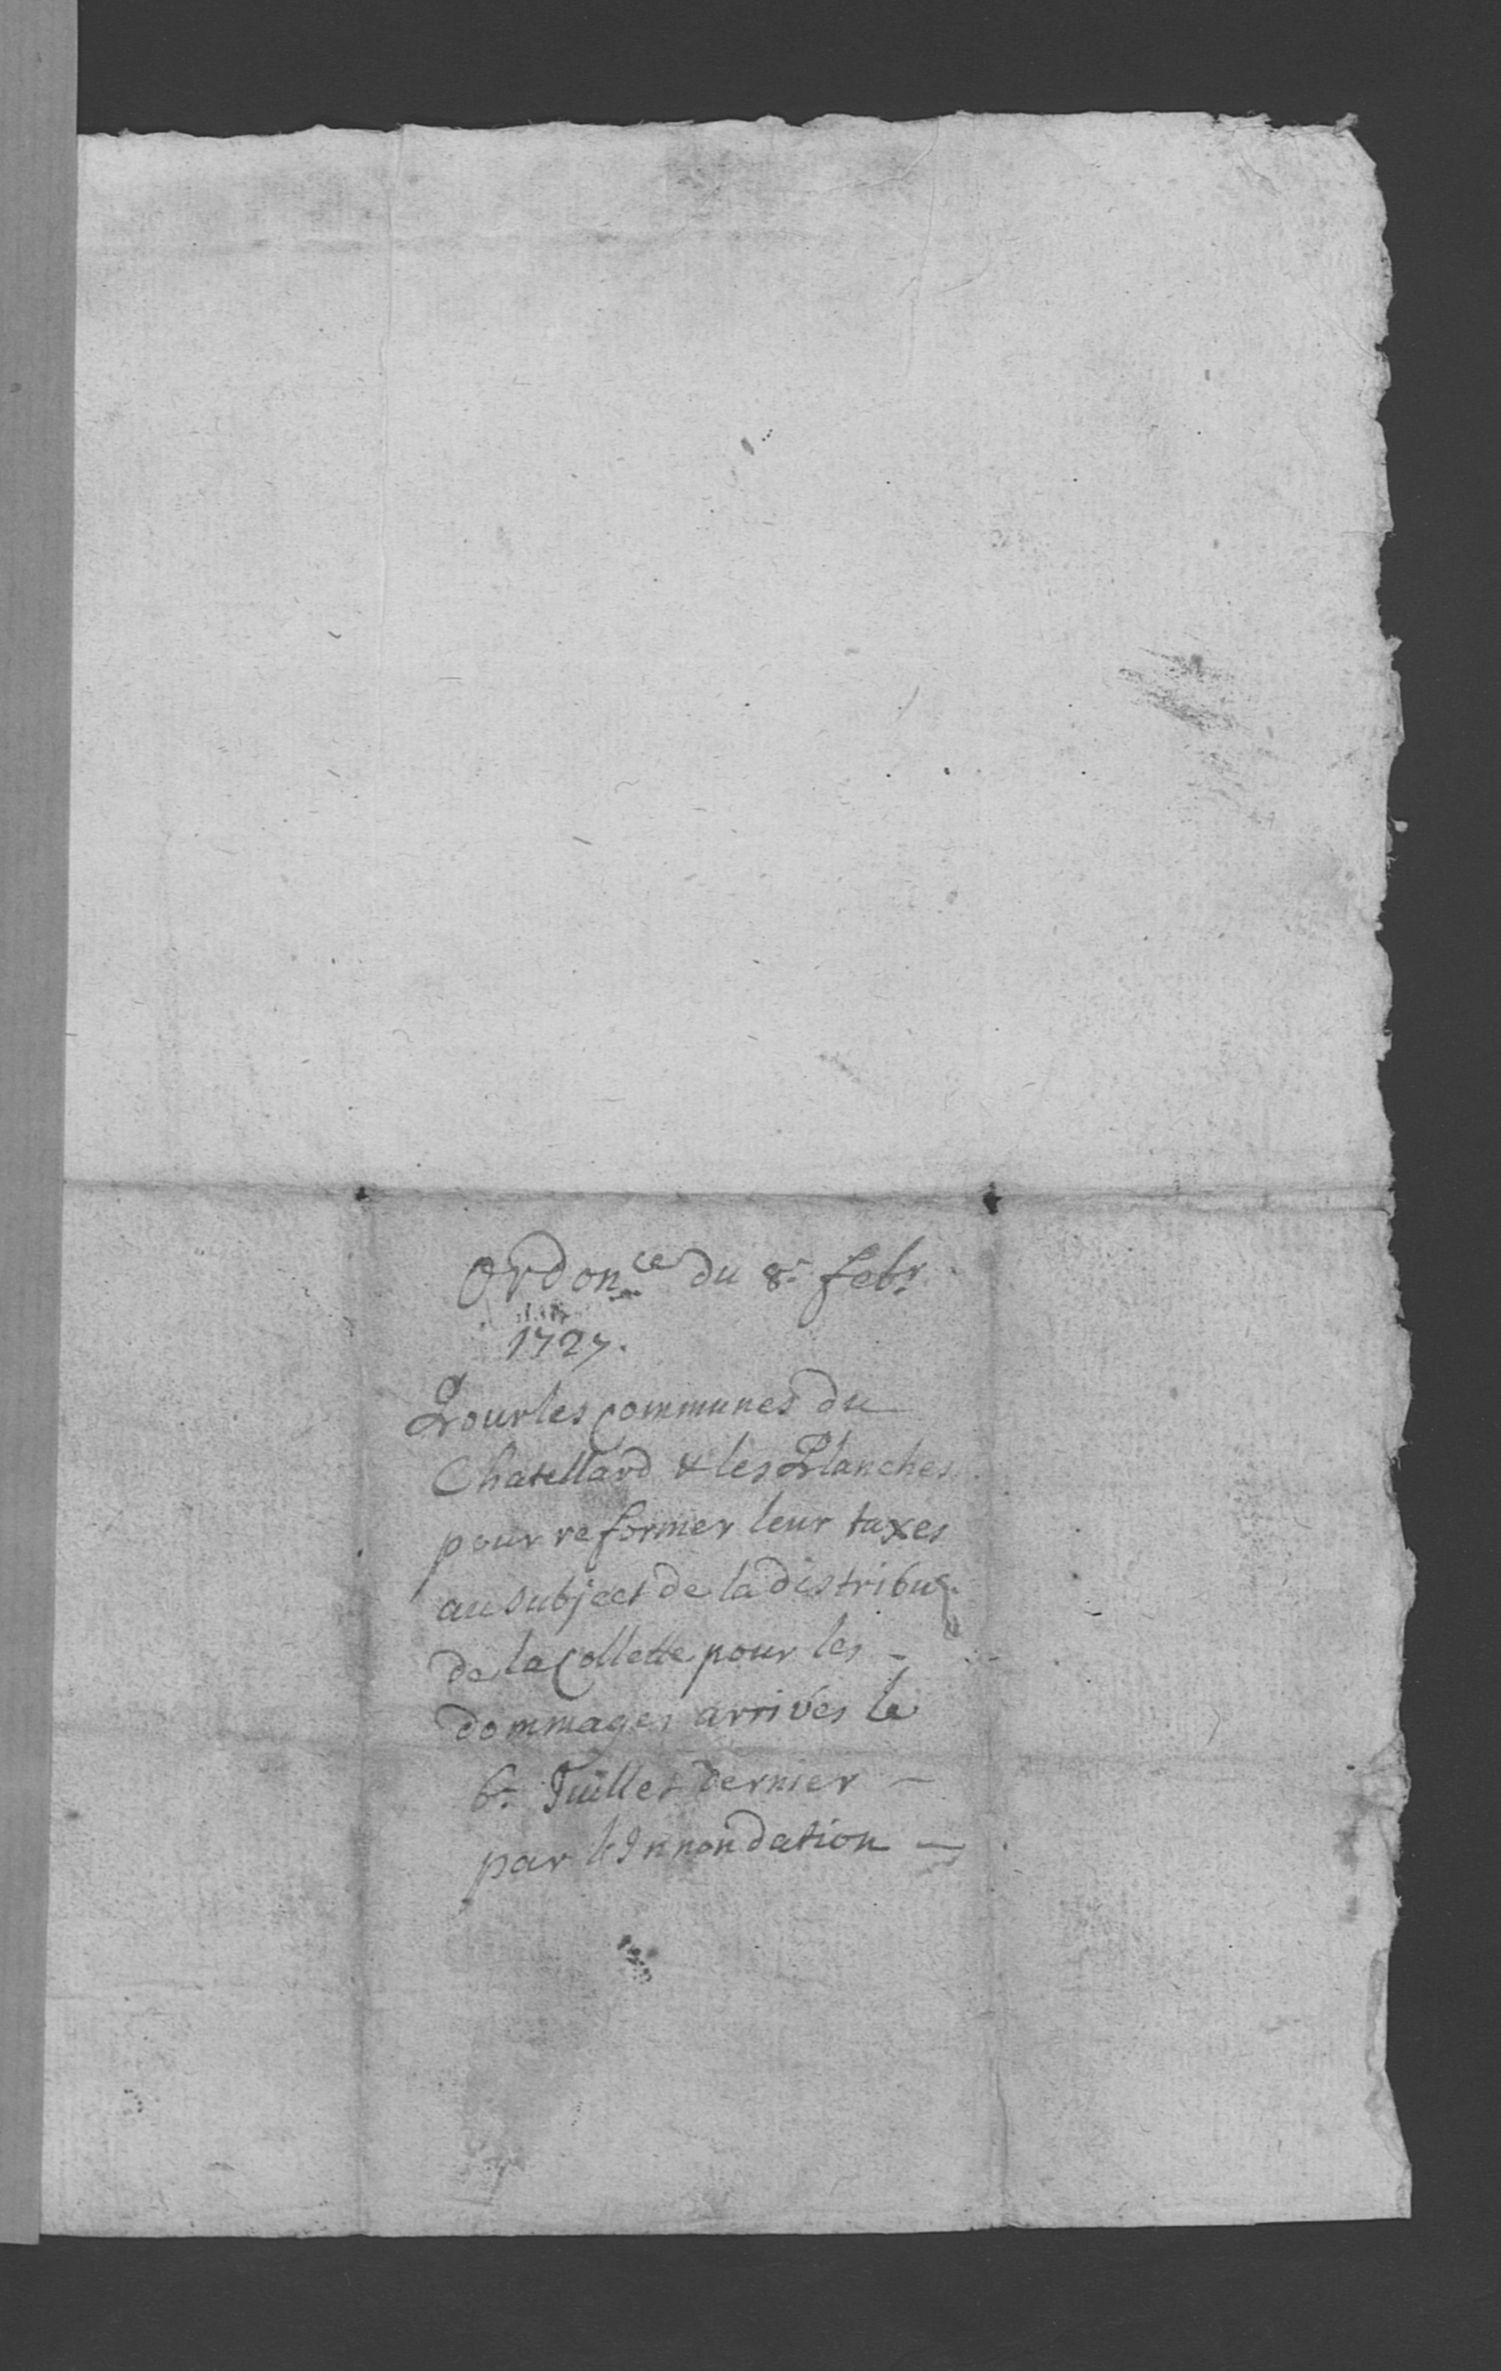 Ordon.ce du 8.e febr.
1727.
Pour les Communes du
Chatellard & les Planches
pour reformer leur taxes
au subject de la distribu.
de la Collette pour les -
dommages arrivés le
6.e Juillet dernier -
par l'Innondation -